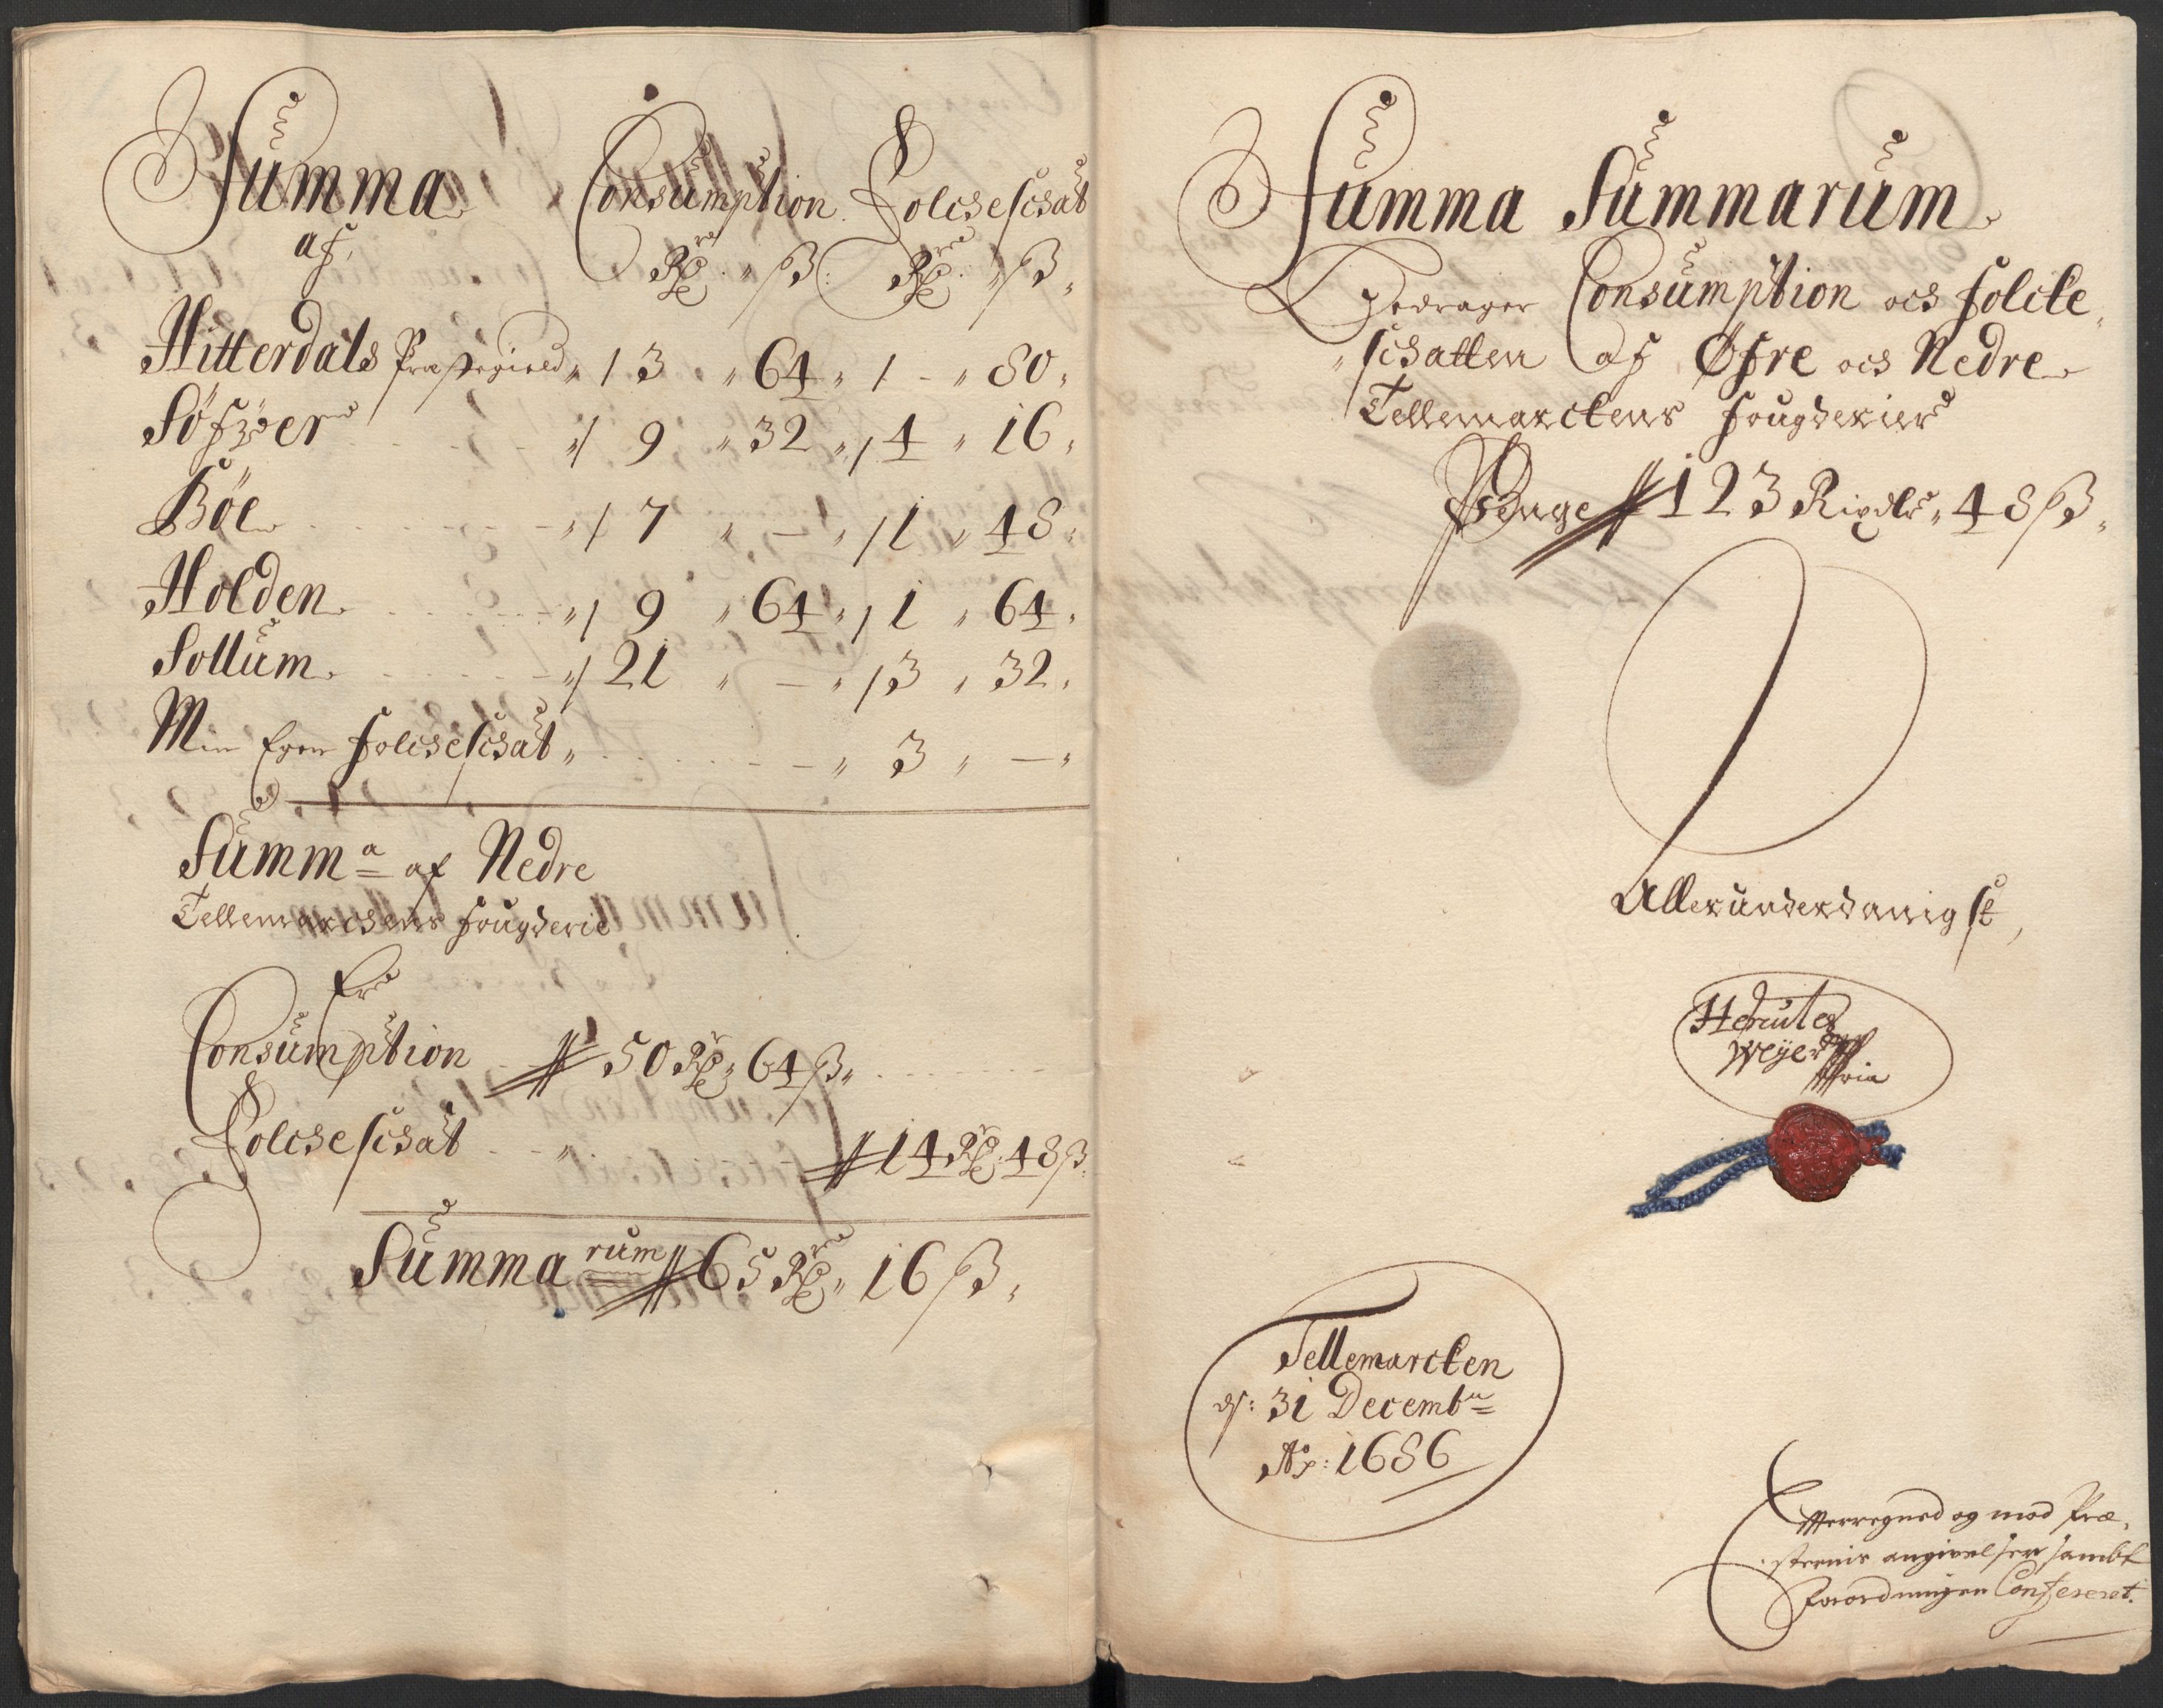 Summa Consumption Folcheschat
af, Rdr ß Rdr ß
Hitterdals Præstegield 13 64 1 - 80
Söfder 9 32 4 16
Böe 7 - 1 48
Holden 9 64 1 64
Sollum 21 - 3 32
Min Egen Folcheschat 3 -
Summa af Nedre
Tellemarchens Fougderie
Er
Consumption 50 Rdr 64 ß
Folcheschat 14 Rdr 48 ß
Summarum 65 Rdr 16 ß
Summa Summarum
Bedrager Consumption och Folcke
schatten af Øfre och Nedre
Tellemarckens Fougderier
Penge 123 Rixdlr 48 ß
Allerunderdanigst,
Hercules
Weyer
mria
Tellemarcken
d: 31 Decembr
Ao: 1686
Efterregned og mod Præ
sternis angivelser sambt
Forordningen Confereret.